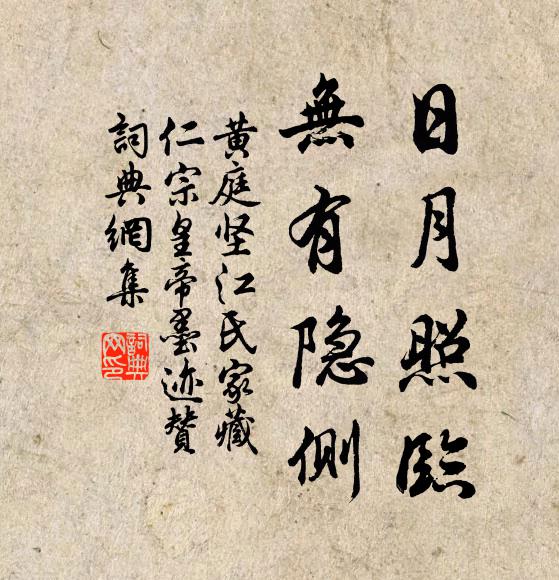 日月照臨
無有隐側
黄庭坚江氏家藏
仁宗皇帝墨迹贊
詞典網集
詞典网印